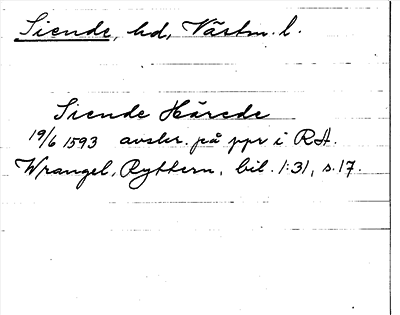 Siende, hd, Västm. l.
Siende Härede
19/6 1593 avskr. på ppr i RA.
Wrangel, Ryttern, bil. 1:31, s. 17.